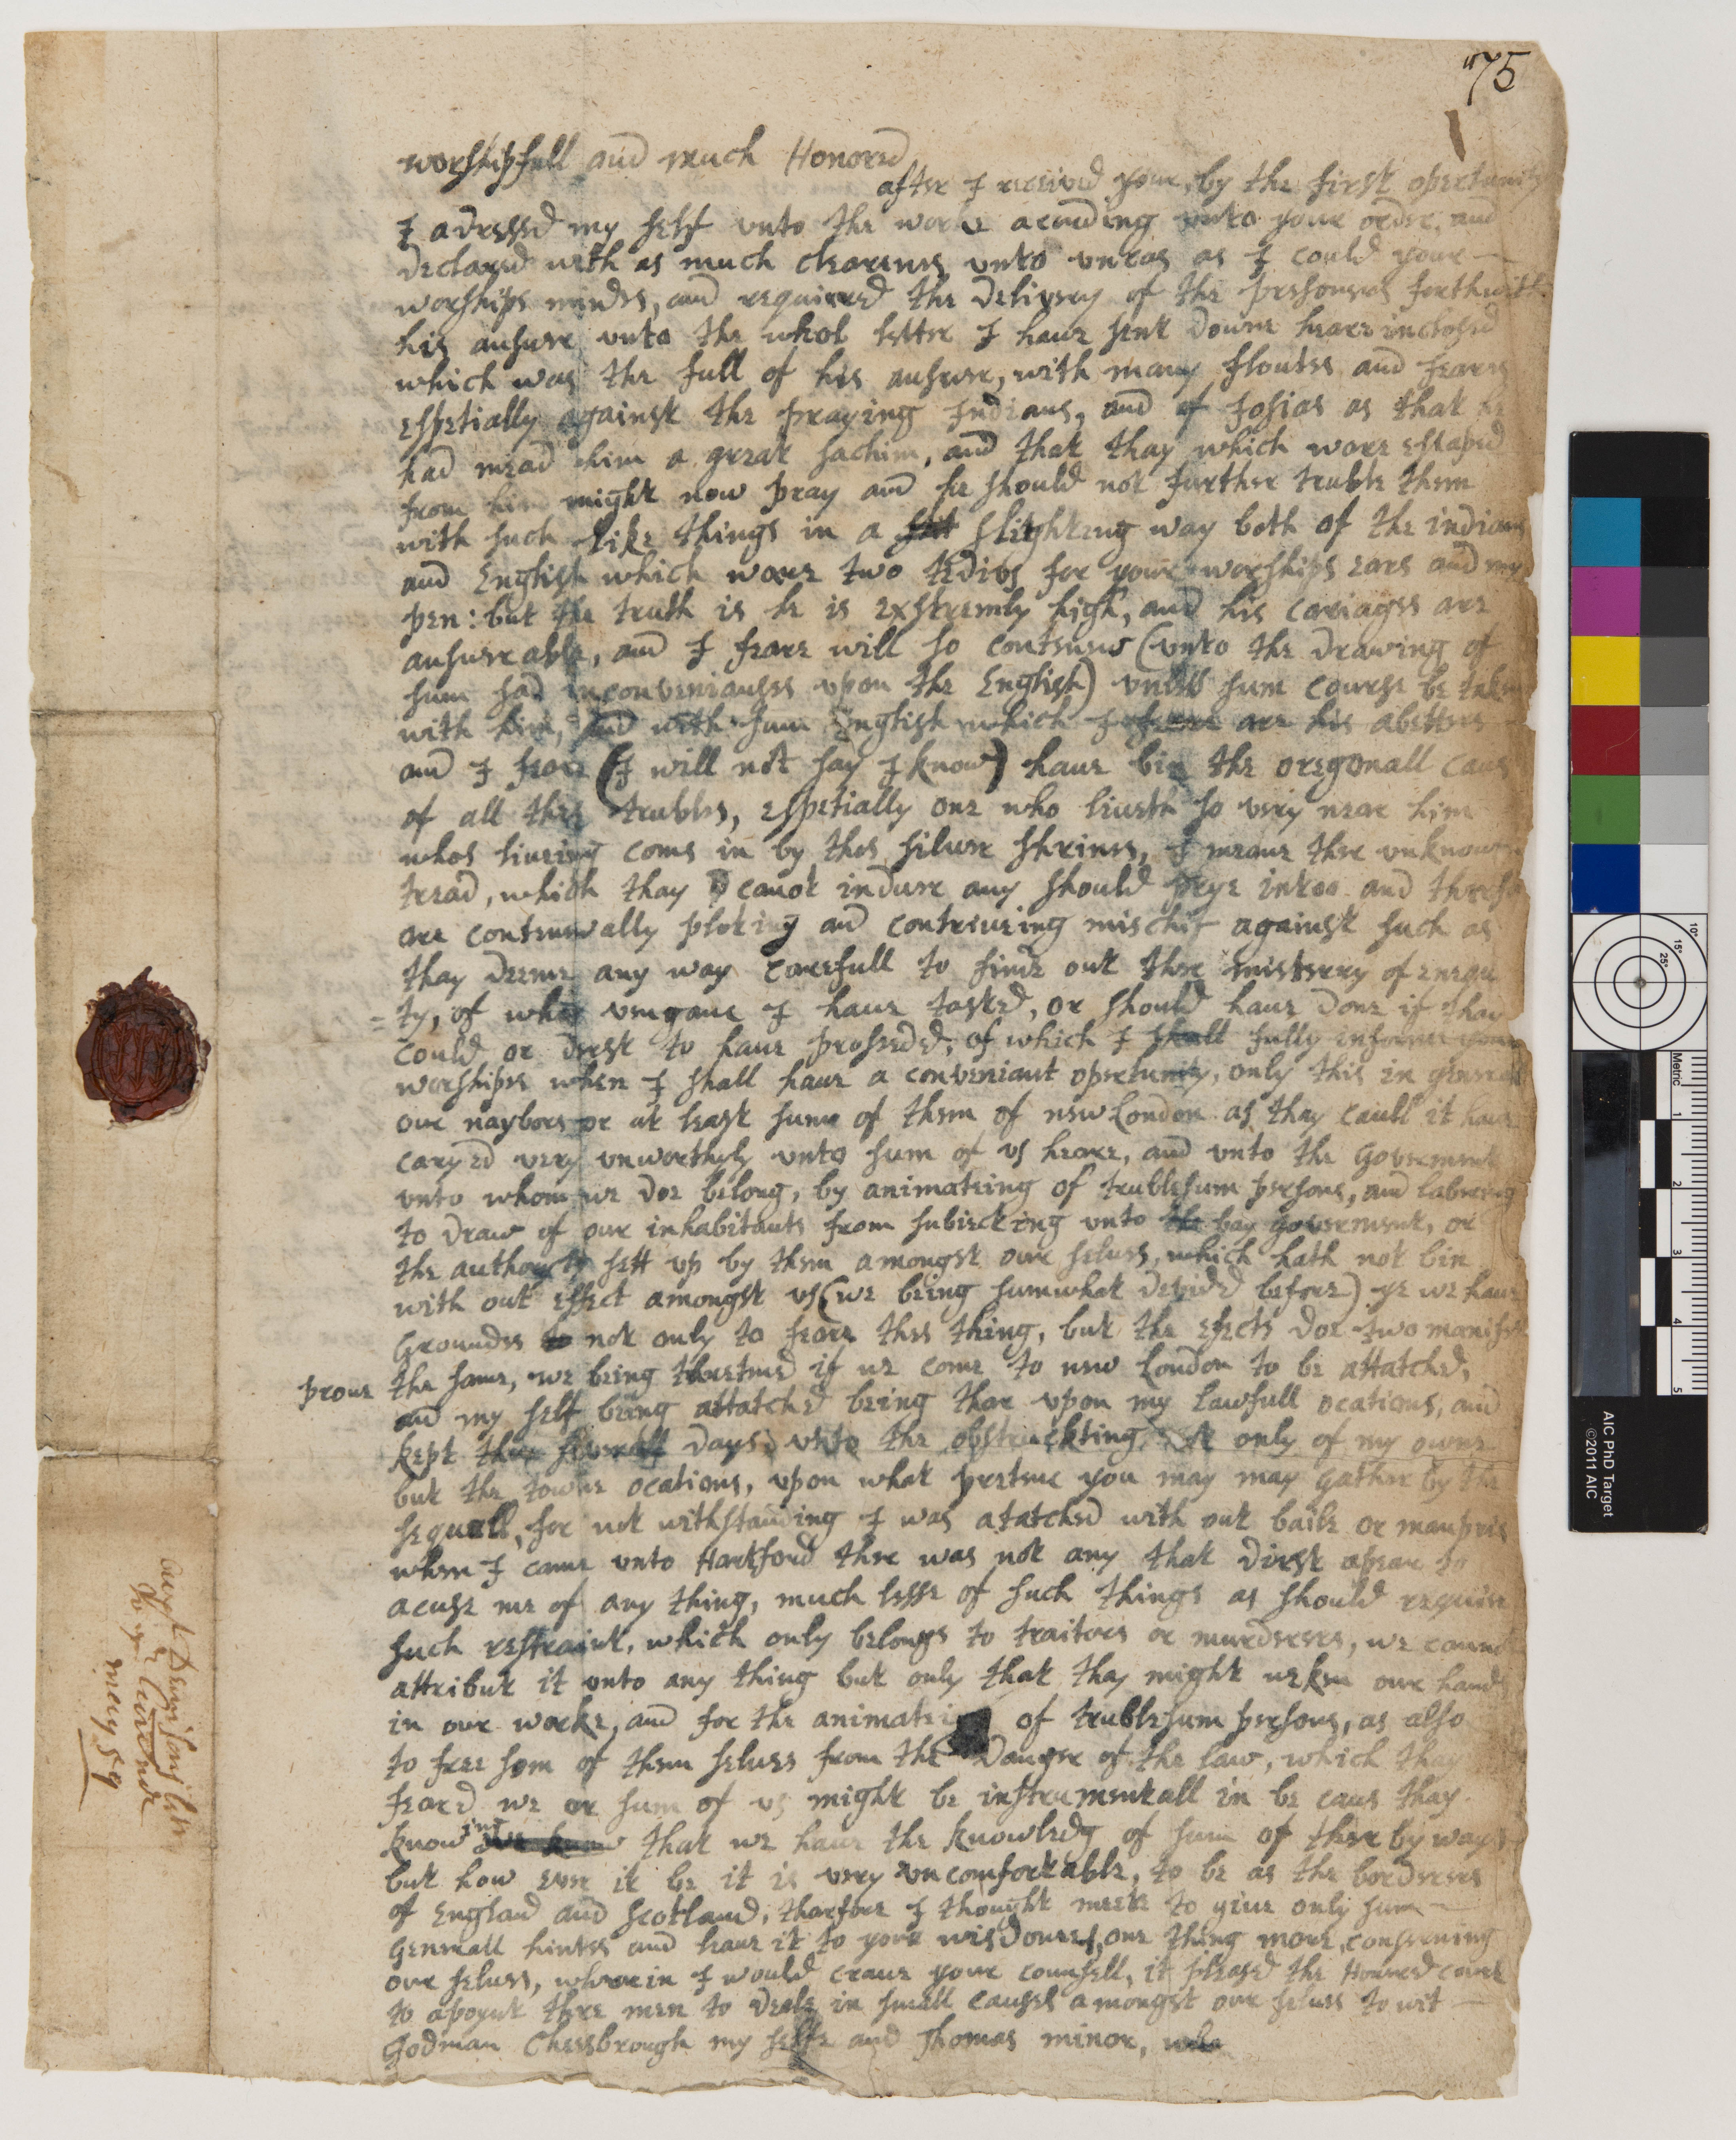 75
worshipfull and much Honored
after I received your, by the first opertunity
I adressed my self vnto the worke acording vnto your order, and
declared with as much clearenes vnto vncas as I could your
worships mindes, and requiered the delivery of the presoners forthwith
his answre vnto the whol letter I haue sent doune heare inclosed
which was the full of his answre, with many floutes and
espetially against the praying Indians, and of Josias as that he
had mead him a great sachim, and that thay which ware escaped
from him might now pray and he should not further truble them
with such like things in a slighting way both of the indians
and English which ware two tedios for your worships ears and my
pen: but the truth is he is exstremly high, and his cariages are
answreable, and I feare will so contenew (vnto the drawing of
sum sad inconveniances vpon the English) vnless sum course be taken
with him, and with sum English which I feare are his abetters
and I feare (I will not say I know) haue bin the oregonall caus
of all thes trubles, espetially one who liueth so very neare him
whos liueing coms in by thes siluer shrines, I meane there vnknown
tread, which thay canot indure any should prye intoo and
are contenewally ploting and contriueing mischif against such as
thay deeme any way carefull to finde out there misterey of enequ
=ty, of whos vengane I haue tasted, or should haue done if thay
could or durst to haue proseded, of which I shall fully informe your
worships when I shall haue a conveniant opertunity, only this in generall
our naybors or at least sume of them of new London as thay caull it haue
caryed very vnworthyly vnto sum of vs heare, and vnto the Goverment
vnto whom we doe belong, by animateing of trublesum persons, and labering
to draw of our inhabitants from subiecting vnto the bay goverment, or
the authoryty sett vp by them amongst our selues, which hath not bin
with out effect amongst vs (we being sumwhat devided before) ye we haue
Groundes not only to feare this thing, but the efects doe two manifest
proue the same, we being thretned if we come to new London to be attatched,
and my self being attatched being thare vpon my lawfull ocations, and
kept thare severall days vnto the obstruckting not only of my owne
but the towne ocations, vpon what pretene you may may gather by the
sequell, for not withstanding I was atatched with out baile or manpris
when I came vnto Hartford there was not any that durst apear to
acuse me of any thing, much lesse of such things as should require
such restraint, which only belongs to traitors or murderers, we cannot
attribut it vnto any thing but only that thay might weken our hands
in our worke, and for the animatei of trublesum persons, as also
to free som of them selues from the danger of the law, which thay
feared we or sum of vs might be instrumentall in be caus thay
knowing that we haue the knowledg of sum of there by ways
but how ever it be it is very vncomfortable, to be as the borderers
of England and Scotland, tharfore I thought meete to giue only sum
Generall hintes and leaue it to your wisdomes, one thing more, conserning
our selues, wharein I would craue your counsell, it pleased the Honered court
to apoynt thre men to deale in small causes amongst our selues to wit
Godman Cheesbrough my selfe and Thomas minor, who
Capt Denisons letter
May 59